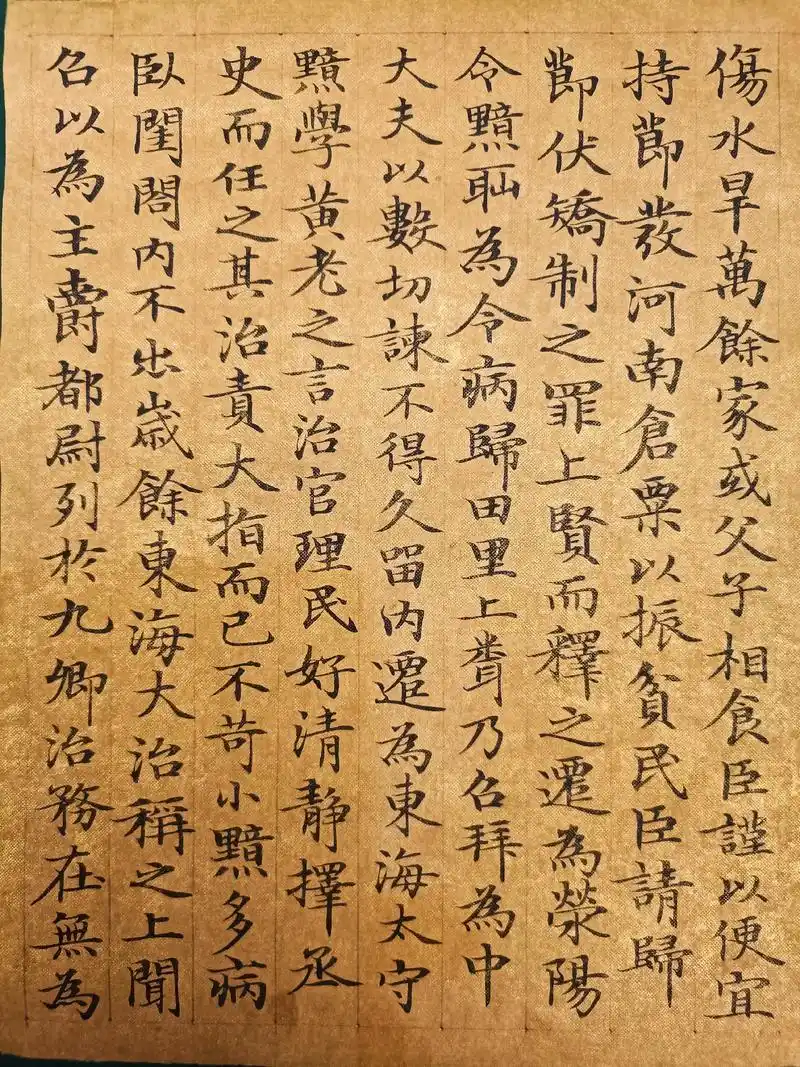 傷水旱萬餘家或父子相食臣謹以便宜
持節發河南倉粟以振貧民臣請歸
節伏矯制之罪上賢而釋之遷為滎陽
令黯恥為令病歸田里上聞乃召拜為中
大夫以數切諫不得久留內遷為東海太守
黯學黃老之言治官理民好清靜擇丞
史而任之其治責大指而已不苛小黯多病
臥閨閤內不出歲餘東海大治稱之上聞
召以為主爵都尉列於九卿治務在無為